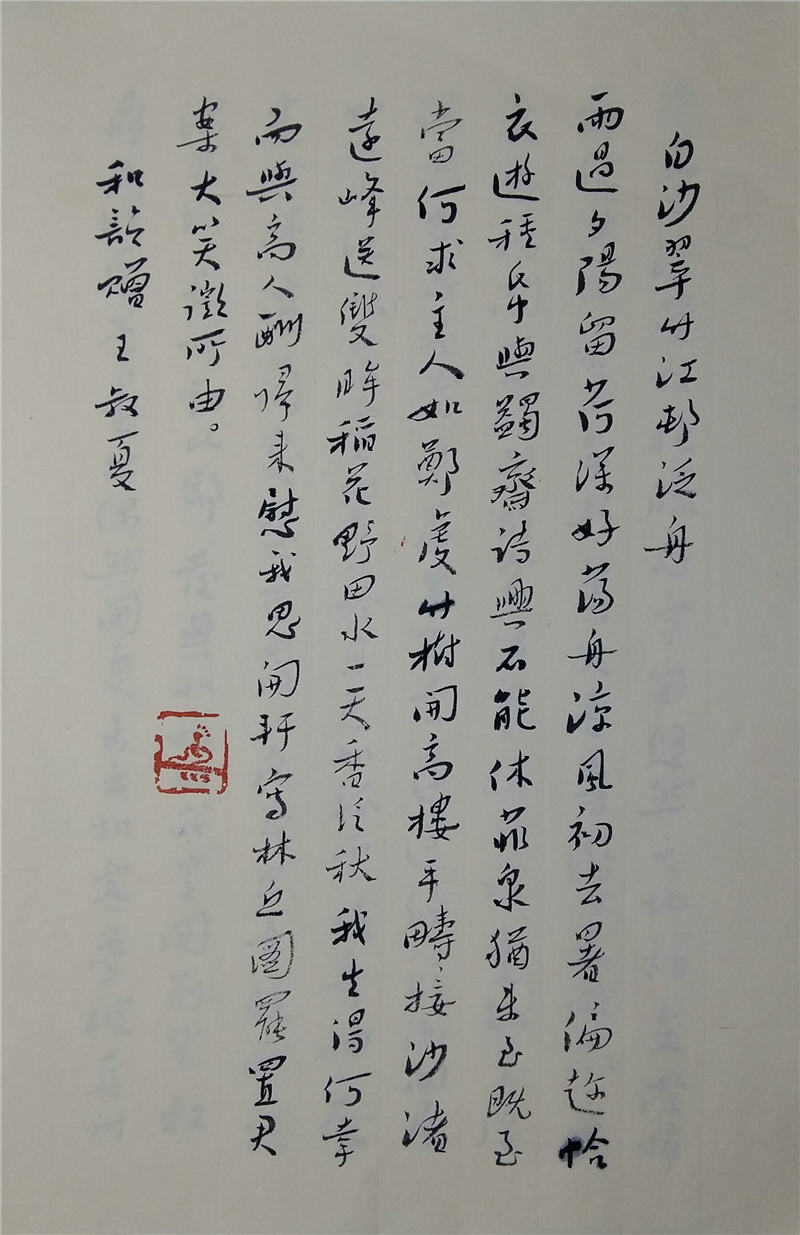 白沙翠竹江邨泛舟
雨過夕陽留荷深好蕩舟涼風初去暑偏趂袷
衣遊種與蠲齋詩興不能休菰泉猶未至既至
當何求主人如鄭虔竹樹開高樓平疇接沙渚
遠峰送雙眸稻花野田水一天香泛秋我生得何幸
而與高人酬歸来慰我思開軒寫林丘圖罷置君
案大笑澂所由。
和韻贈王叔夏